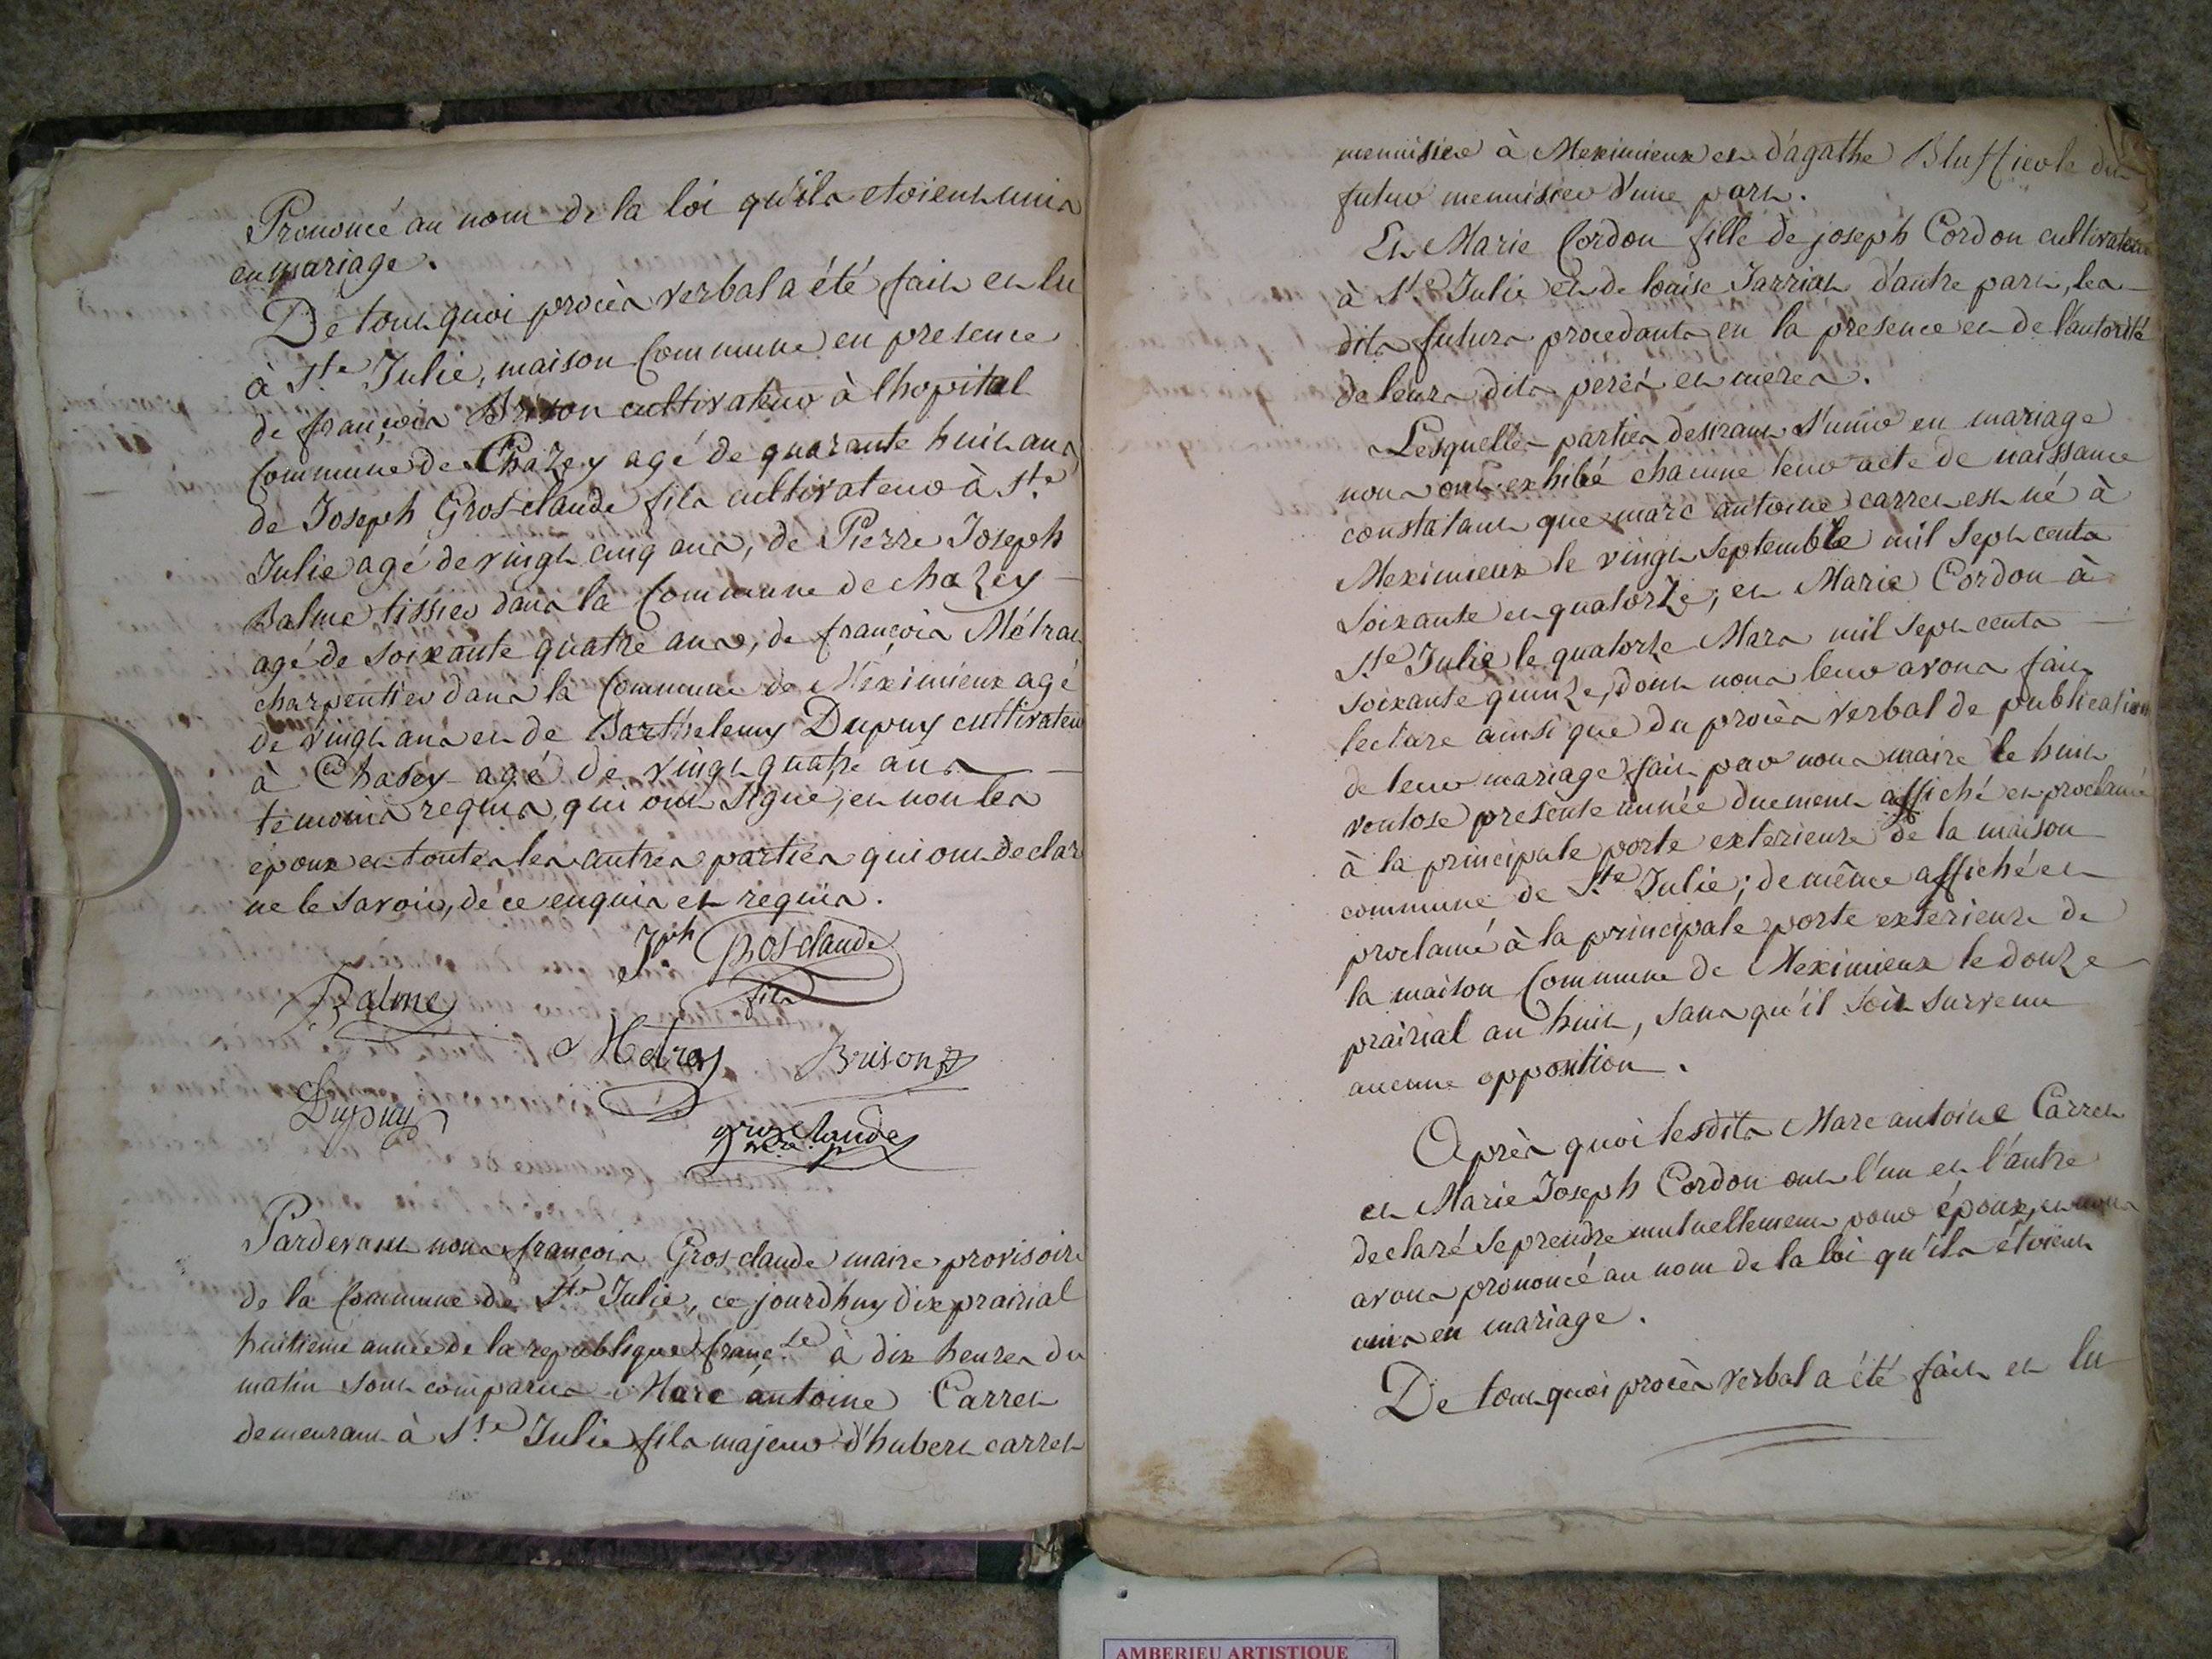 Prononcé au nom de la loi qu'ils etoient unis
en mariage.
De tout quoi procès verbal a été fait et lu
à Ste Julie, maison Commune en presence
de françois Brison cultivateur à lhopital
Commune de Chazey agé de quarante huit ans
de Joseph Gros-claude fils cultivateur à Ste
Julie agé de vingt cinq ans, de Pierre Joseph
Balme tissier dans la Commune de chazey
agé de soixante quatre ans, de françois Métras
charpentier dans la Commune de Méximieux agé
de vingt ans et de Barthelemy Dupuy cultivateur
à Chasey agé de vingt quatre ans
temoins requis qui ont signé, et non les
époux et toutes les autres parties qui ont declar
ne le savoir, de ce enquis et requis.
Jph Grosclaude
fils
Balme
Metras Brison
Dupuy
grosclaude
Pardevant nous françois Gros-claude maire provisoire
de la Commune de Ste Julie, ce jourdhuy dix prairial
huitieme année de la republique franç.se à dix heures du
matin sont comparus Marc antoine Carret
demeurant à Ste Julie fils majeur d'hubert carret
menuisier à Meximieux et d'agathe du
futur menuisier d'une part.
Et Marie Cordon fille de joseph Cordon cultivateur
à Ste Julie et de louise Jarriat d'autre part, les
dits futurs procedants en la presence et de l'autorité
de leurs dits peres et meres.
Lesquelles parties desirant s'unir en mariage
nous ont exhibé chacune leur acte de naissance
constatant que marc antoine carret est né à
Meximieux le vingt septembre mil sept cents
soixante et quatorze; et Marie Cordon à
Ste Julie le quatorze Mars mil sept cents
soixante quinze, dont nous leur avons fait
lecture ainsi que du procès verbal de publication
de leur mariage fait par nous maire le huit
ventose presente année duement affiché et proclamé
à la principale porte exterieure de la maison
commune de Ste Julie; de même affiché et
proclamé à la principale porte exterieure de
la maison Commune de Meximieux le douze
prairial an huit, sans qu'il soit survenu
aucune opposition.
Après quoi lesdits Marc antoine Carret
et Marie Joseph Cordon ont l'un et l'autre
declaré se prendre mutuellement pour époux, et nous
avons prononcé au nom de la loi qu'ils étoient
unis en mariage.
De tout quoi procès verbal a été fait et lu
AMBERIEU ARTISTIQUE